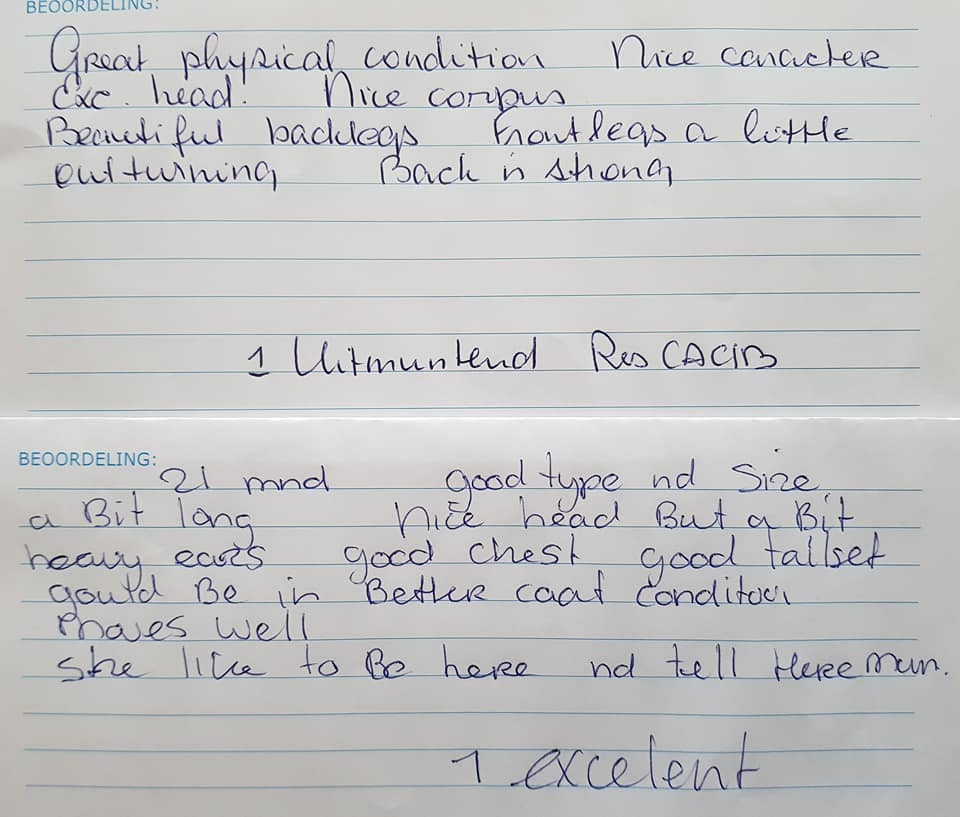 BEOORDELING:
Great physical condition Nice caracter
Exc. head! Nice corpus
Beautiful backlegs Frontlegs a little
outturning Back is strong
1 Uitmuntend Res CACIB
BEOORDELING:
21 mnd good type nd Size
a Bit long Nice head But a Bit
heavy ears good chest good tailset
gould Be in Better coat condition
Moves well
She like to Be here nd tell
1 excelent